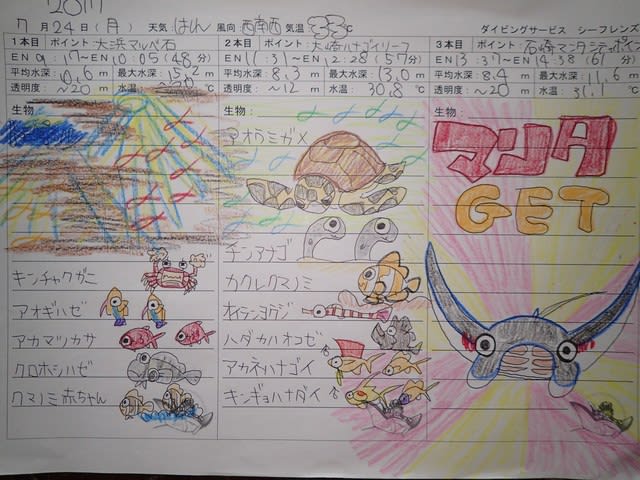 2017
7月24日(月) 天気 はれ 風向 西南西 気温 33℃ ダイビングサービス シーフレンズ
1本目 ポイント:大浜マルベ石
EN 9:17~EN 10:05(48分)
平均水深:10.6m 最大水深:15.2m
透明度:~20m 水温: ℃
生物:
キンチャクガニ
アオギハゼ
アカマツカサ
クロホシハゼ
クマノミ赤ちゃん
2本目 ポイント:大崎ハナゴイリーフ
EN 11:31~EN 12:28(57分)
平均水深:8.3m 最大水深:13.0m
透明度:~12m 水温:30.8℃
生物:
アオウミガメ
チンアナゴ
カクレクマノミ
オイランヨウジ
ハダカハオコゼ
アカネハナゴイ
キンギョハナダイ
3本目 ポイント:石崎マンタ
EN 13:37~EN 14:38(61分)
平均水深:8.4m 最大水深:11.6m
透明度:~20m 水温:31.1℃
生物:
マンタ
GET